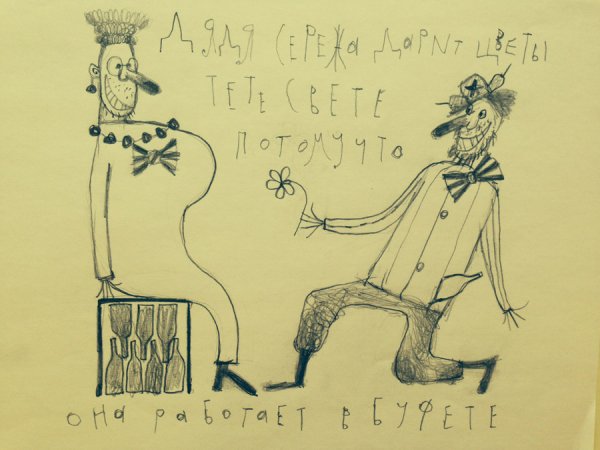 ДЯДЯ СЕРЕЖА ДАРИТ ЦВЕТЫ
ТЕТЕ СВЕТЕ
ПОТОМУ ЧТО
ОНА РАБОТАЕТ В БУФЕТЕ